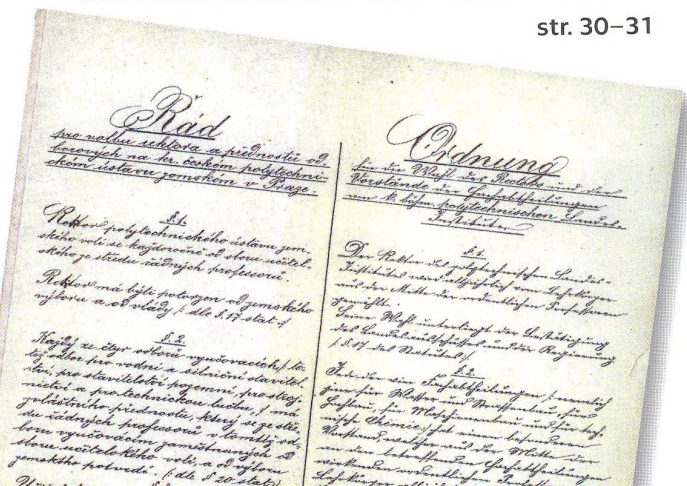 str. 30–31
Řád
pro volbu rektora a přednostů od-
borových na kr. českém polytechni-
ckém ústavu zemském v Praze.
§.1.
Rektor polytechnického ústavu zem-
ského volí se každoročně od sboru učitel-
ského ze středu řádných professorů.
Rektor má býti potvrzen od zemského
výboru a od vlády /: dle §.17 stat :/
§.2.
Každý ze čtyr odborů vyučovacích /: to
jest odbor pro vodní a silniční stavitel-
ství, pro stavitelství pozemní, pro stroj-
nictví a pro technickou lučbu, :/ má
zvláštního přednostu, který se ze stře-
du řádných professorů v tomtéž od-
boru vyučovacím zaměstnaných od
sboru učitelského volí, a od výboru
zemského potvrdí. /: dle § 20 stat :/
Ordnung
für die Wahl des Rektors und der
Vorstände der Fachabtheilungen
am k. böhm. polytechnischen Landes-
Institute.
§.1.
Der Rektor des polytechnischen Landes-
Institutes wird alljährlich vom Lehrkörper
aus der Mitte der ordentlichen Professoren
gewählt.
Seine Wahl unterliegt der Bestätigung
des Landesausschußes und der Regierung
/: §.17 des Statutes :/
§.2.
Jede der vier Fachabtheilungen /: nemlich
jene für Wasser und Strassenbau, für
Hochbau, für Maschinenbau und für tech-
nische Chemie :/ hat einen besonderen
Vorstand, welcher aus der Mitte der
in den betreffenden Fachabtheilungen
wirkenden ordentlichen Professoren